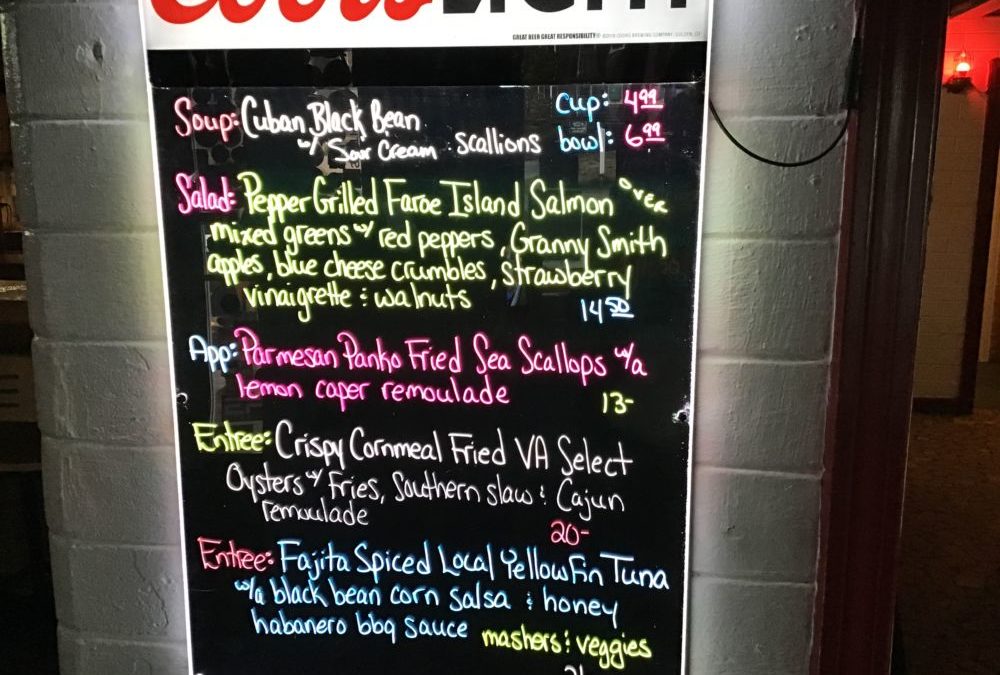 Coors LIGHT
GREAT BEER GREAT RESPONSIBILITY®
Soup: Cuban Black Bean
w/ Sour Cream : scallions
cup: 4.99
bowl: 6.99
Salad: Pepper Grilled Faroe Island Salmon over
mixed greens w/ red peppers, Granny Smith
apples, blue cheese crumbles, strawberry
vinaigrette : walnuts
14 50
App: Parmesan Panko Fried Sea Scallops w/a
lemon caper remoulade
13-
Entree: Crispy Cornmeal Fried VA Select
Oysters w/ Fries, Southern slaw : Cajun
remoulade
20-
Entree: Fajita Spiced Local Yellowfin Tuna
w/a black bean corn salsa : honey
habanero bbq sauce
mashers : veggies